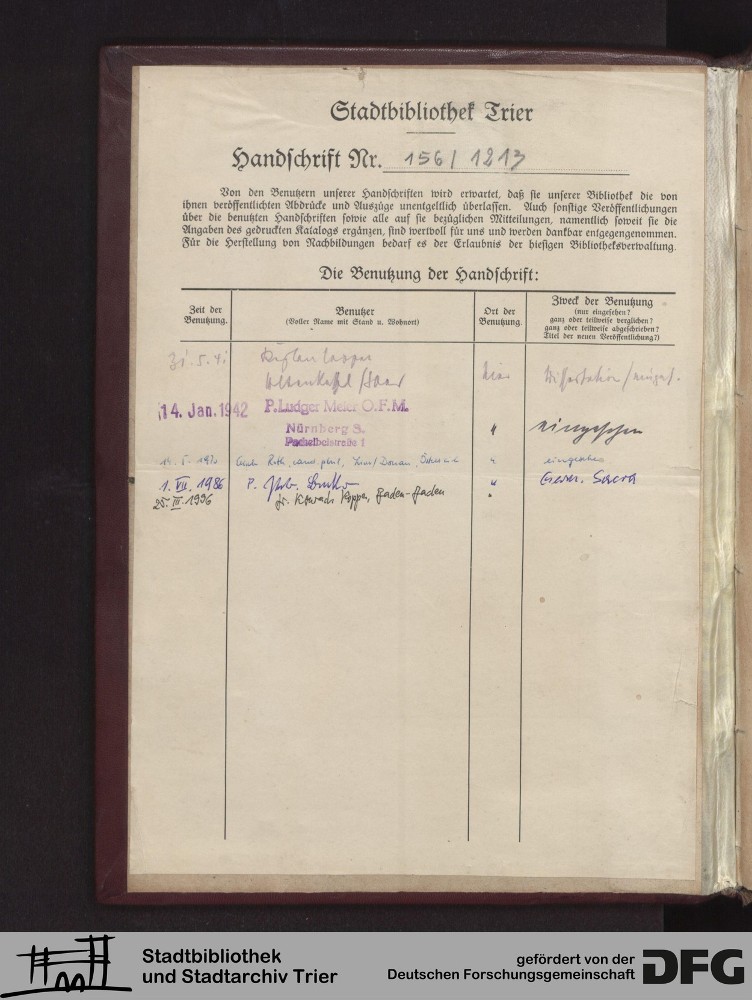 Stadtbibliothek Trier
Handschrift Nr. 156 / 1213
Von den Benutzern unserer Handschriften wird erwartet, daß sie unserer Bibliothek die von
ihnen veröffentlichten Abdrücke und Auszüge unentgeltlich überlassen. Auch sonstige Veröffentlichungen
über die benutzten Handschriften sowie alle auf sie bezüglichen Mitteilungen, namentlich soweit sie die
Angaben des gedruckten Katalogs ergänzen, sind wertvoll für uns und werden dankbar entgegengenommen.
Für die Herstellung von Nachbildungen bedarf es der Erlaubnis der hiesigen Bibliotheksverwaltung.
Die Benutzung der Handschrift:
Zeit der
Benutzung.
Benutzer
(Voller Name mit Stand u. Wohnort)
Ort der
Benutzung.
Zweck der Benutzung
(nur eingesehen?
ganz oder teilweise verglichen?
ganz oder teilweise abgeschrieben?
Titel der neuen Veröffentlichung?)
31.5.41
hier Dissertation
14. Jan. 1942 P. Ludger Meier O.F.M.
Nürnberg S. " eingesehen
Pachelbelstraße 1
Roth, cand. phil., " eingesehen
1. VII. 1986 P. " Germ. Sacra
25. III. 1996 Dr. Konrad
Stadtbibliothek
und Stadtarchiv Trier
gefördert von der
Deutschen Forschungsgemeinschaft
DFG